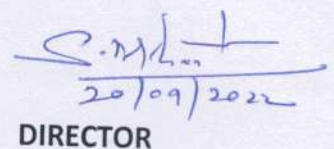 20/09/2022
DIRECTOR